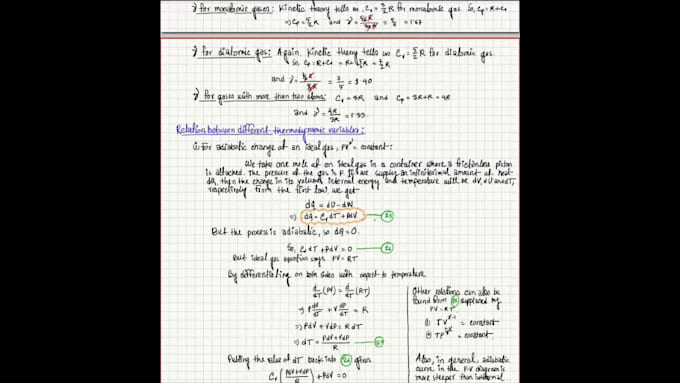 γ for monatomic gases: Kinetic theory tells us Cᵥ = 3/2 R for monatomic gas. So, Cₚ = R + Cᵥ
⇒ Cₚ = 5/2 R and γ = = 5/3 = 1.67
γ for diatomic gas: Again, Kinetic theory tells us Cᵥ = 5/2 R for diatomic gas.
So, Cₚ = R + Cᵥ = R + 5/2 R = 7/2 R
and γ = = = 1.40
γ for gases with more than two atoms: Cᵥ = 3R and Cₚ = 3R + R = 4R
and γ = 4R/3R = 1.33
Relation between different thermodynamic variables:
for adiabatic change of an ideal gas, PV^γ = constant:
We take one mole of an ideal gas in a container where a frictionless piston
is attached. The pressure of the gas is P. If we supply an infinitesimal amount of heat
dq, then the change in its volume, internal energy and temperature will be dV, dU and dT,
respectively. From the first law, we get
dq = dU - dW
⇒ dq = Cᵥ dT + PdV
But the process is adiabatic, so dq = 0.
So, Cᵥ dT + PdV = 0
But ideal gas equation says PV = RT
By differentiating on both sides with respect to temperature
d/dT (PV) = d/dT (RT)
⇒ P dV/dT + V dP/dT = R
⇒ PdV + VdP = R dT
⇒ dT = (PdV + VdP)/R
Putting the value of dT back into gives
Cᵥ ((PdV + VdP)/R) + PdV = 0
Other relations can also be
found from supplied by
PV = RT.
① TV^γ-1 = constant
② = constant
Also, in general, adiabatic
curve in the P-V diagram is
more steeper than isothermal